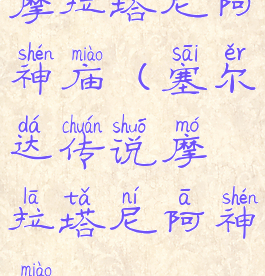 摩拉塔尼阿
shén miào sāi ěr
神庙(塞尔
dá chuán shuō mó
达传说摩
lā tǎ ní ā shén
拉塔尼阿神
miào